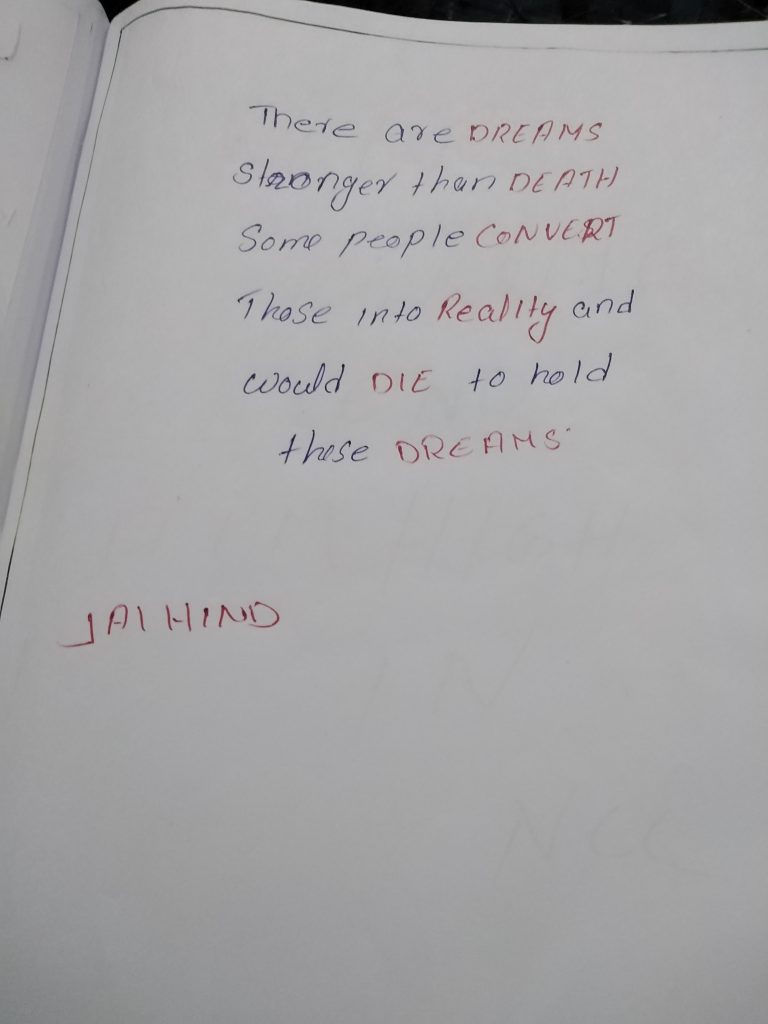 There are DREAMS
Stronger than DEATH
Some people CONVERT
Those into Reality and
would DIE to hold
those DREAMS
JAI HIND
IN
NCC